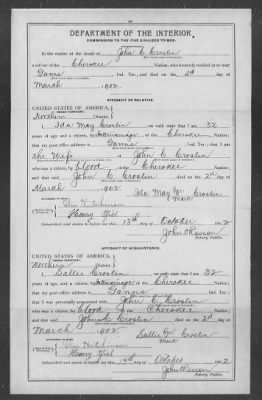 DEPARTMENT OF THE INTERIOR,
COMMISSION TO THE FIVE CIVILIZED TRIBES.
In the matter of the death of John C Croslin
a citizen of the Cherokee Nation, who formerly resided at or near
Ind. Ter., and died on the 2nd day of
March, 1902
AFFIDAVIT OF RELATIVE.
UNITED STATES OF AMERICA,
INDIAN TERRITORY,
Northern District.
I, Ida May Croslin on oath state that I am 32
years of age and a citizen, by intermarriage of the Cherokee Nation;
that my post office address is Ind. Ter.; that I am
the Wife of John C Croslin
who was a citizen, by blood of the Cherokee Nation;
and that said John C Croslin died on the 2nd day of
March, 1902
Ida May her Croslin
mark
Wm Hutchinson
Henry
Subscribed and sworn to before me this 13th day of October 1902
Notary Public.
AFFIDAVIT OF ACQUAINTANCE.
UNITED STATES OF AMERICA,
INDIAN TERRITORY,
Northern District.
I, Sallie Croslin on oath state that I am 32
years of age, and a citizen, by intermarriage of the Cherokee Nation;
that my post office address is Ind. Ter.;
that I was personally acquainted with John C Croslin
who was a citizen, by blood of the Cherokee Nation;
and that said John C Croslin died on the 2nd day of
March, 1902
Sallie her Croslin
mark
Henry
Subscribed and sworn to before me this day of 1902
Notary Public.